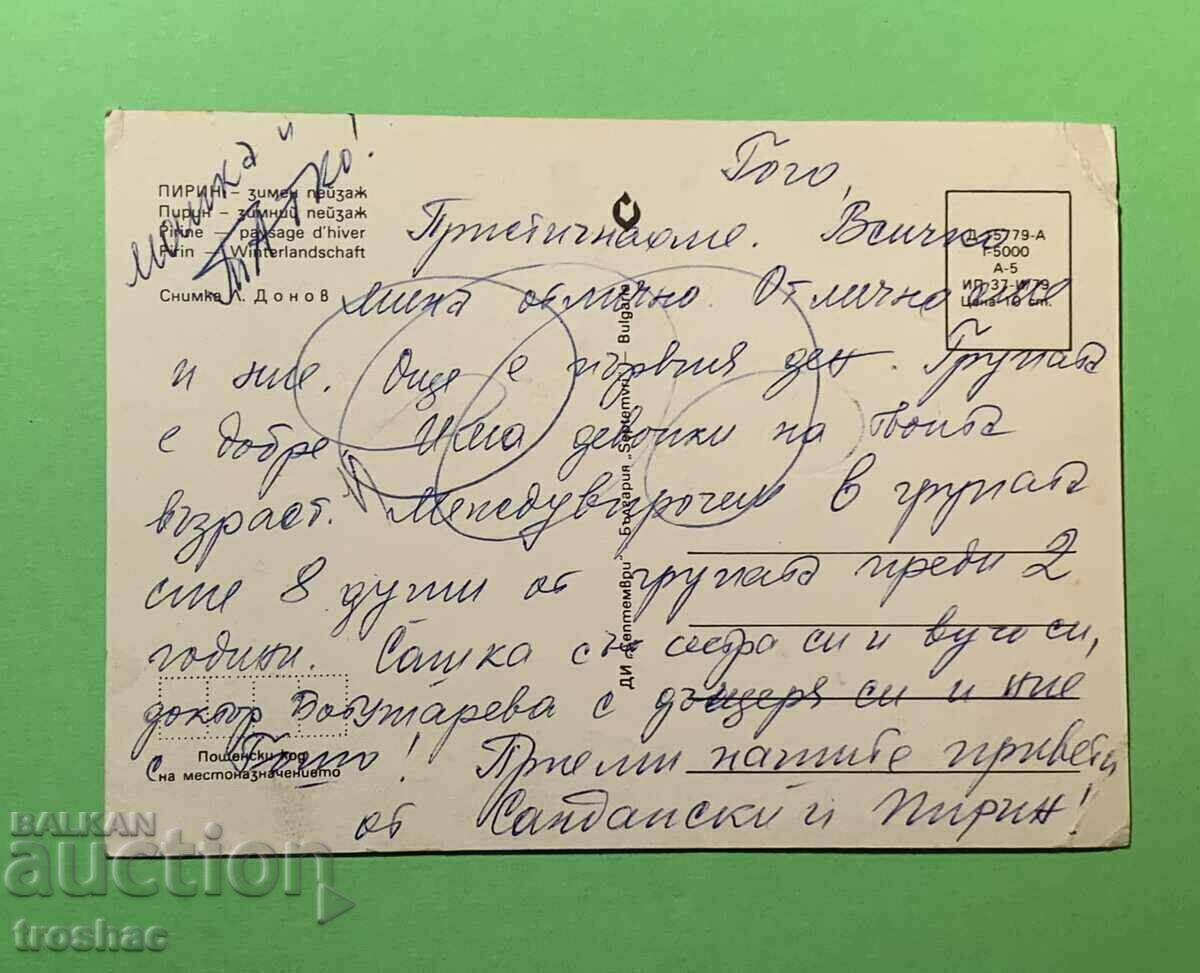 ПИРИН – зимен пейзаж
Пирин – зимний пейзаж
Pirine – paysage d'hiver
Pirin – Winterlandschaft
Снимка Л. Донов
майка и
татко!
Гого,
Пристигнахме. Всичко
мина отлично. Отлично сме
и ние. Още е първия ден. Групата
е добре. Има девойки на твоята
възраст. Междувпрочем в групата
сме 8 души от групата преди 2
години. Сашка със сестра си и вуйчо си,
доктор с дъщеря си и ние
с ! Приеми нашите привети
от Сандански и Пирин!
Пощенски код
на местоназначението
ДИ „Септември" – България „Septemvri" – Bulgarie
Д-55779-А
Т-5000
А-5
ИП-37-И/79
Цена 10 ст.
BALKAN
auction
troshac